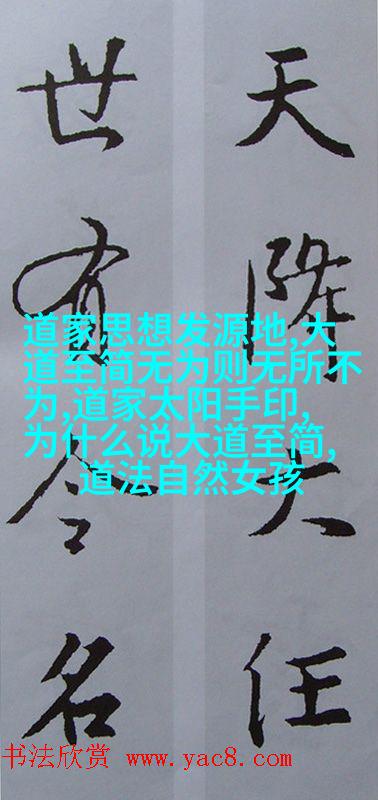 天降大任
世有令名
道家思想发源地,大
道至简无为则无所不
为,道家太阳手印,
为什么说大道至简,
道法自然女孩
书法欣赏 www.yac8.com